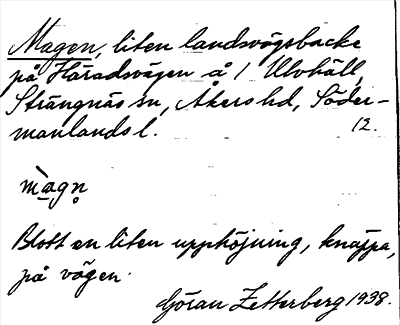 Magen, liten landsvägsbacke
på Häradsvägen å 1 Ulvhäll,
Strängnäs sn, Åkers hd, Söder-
manlands l. 12.
màgn̥
Blott en liten upphöjning, knappa,
på vägen.
Göran Zetterberg 1938.